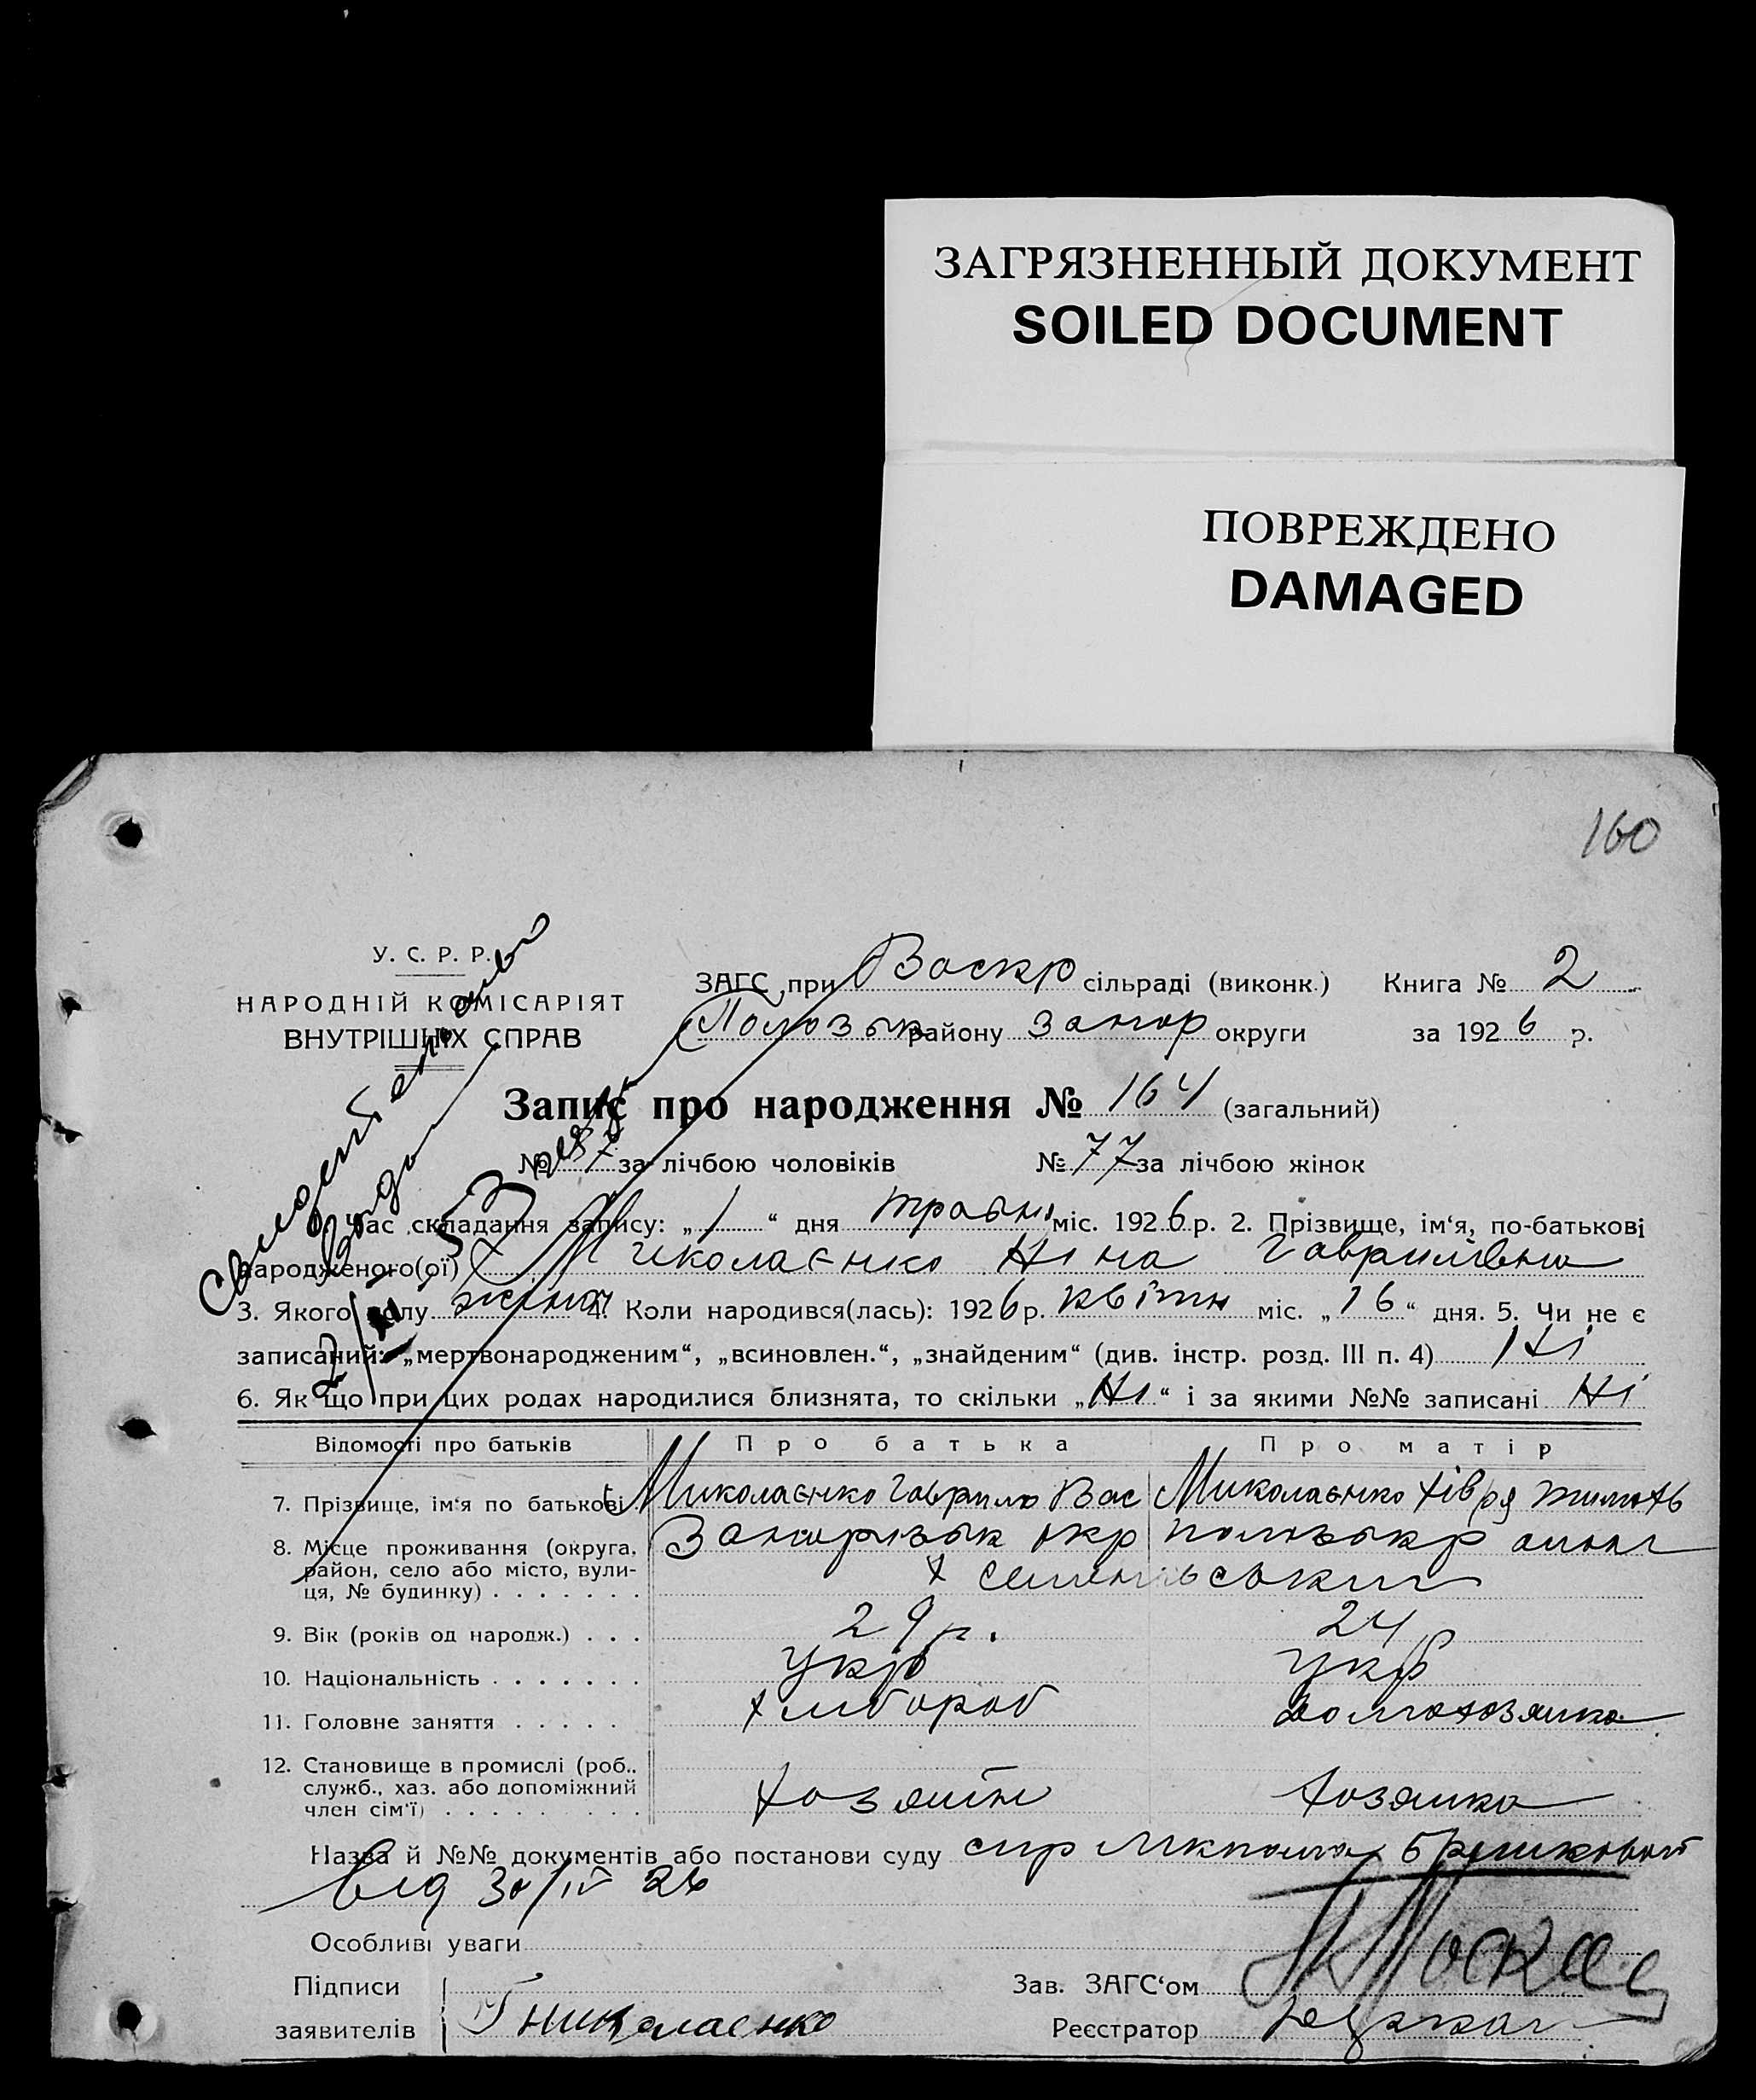 ЗАГРЯЗНЕННЫЙ ДОКУМЕНТ
SOILED DOCUMENT
ПОВРЕЖДЕНО
DAMAGED
160
У. С. Р. Р.
НАРОДНІЙ КОМІСАРІЯТ
ВНУТРІШНІХ СПРАВ
ЗАГС при Воскр сільраді (виконк.) Книга № 2
району Запор округи за 1926 р.
Запис про народження № 164 (загальний)
№ за лічбою чоловіків № 77 за лічбою жінок
час складання запису: „1“ дня травня міс. 1926 р. 2. Прізвище, ім‘я, по-батькові
народженого(ої) Миколаєнко Ніна Гаврилівна
3. Якого полу жіноч 4. Коли народився(лась): 1926 р. квітн міс. „16“ дня. 5. Чи не є
записаний: „мертвонародженим“, „всиновлен.“, „знайденим“ (див. інстр. розд. III п. 4) Ні
6. Як що при цих родах народилися близнята, то скільки „Ні“ і за якими №№ записані Ні
Відомості про батьків Про батька Про матір
7. Прізвище, ім‘я по батькові Миколаєнко Гаврило Вас Миколаєнко Хівря
8. Місце проживання (округа, район, село або місто, вулиця, № будинку) окр
9. Вік (років од народж.) 29 р. 24 р
10. Національність укр укр
11. Головне заняття хлібороб домохозяйка
12. Становище в промислі (роб., служб., хаз. або допоміжний член сім‘ї) хозяїн хозяйка
Назва й №№ документів або постанови суду
від 30/IV 26
Особливі уваги
Підписи
заявителів Г Николаенко
Зав. ЗАГС‘ом
Реєстратор